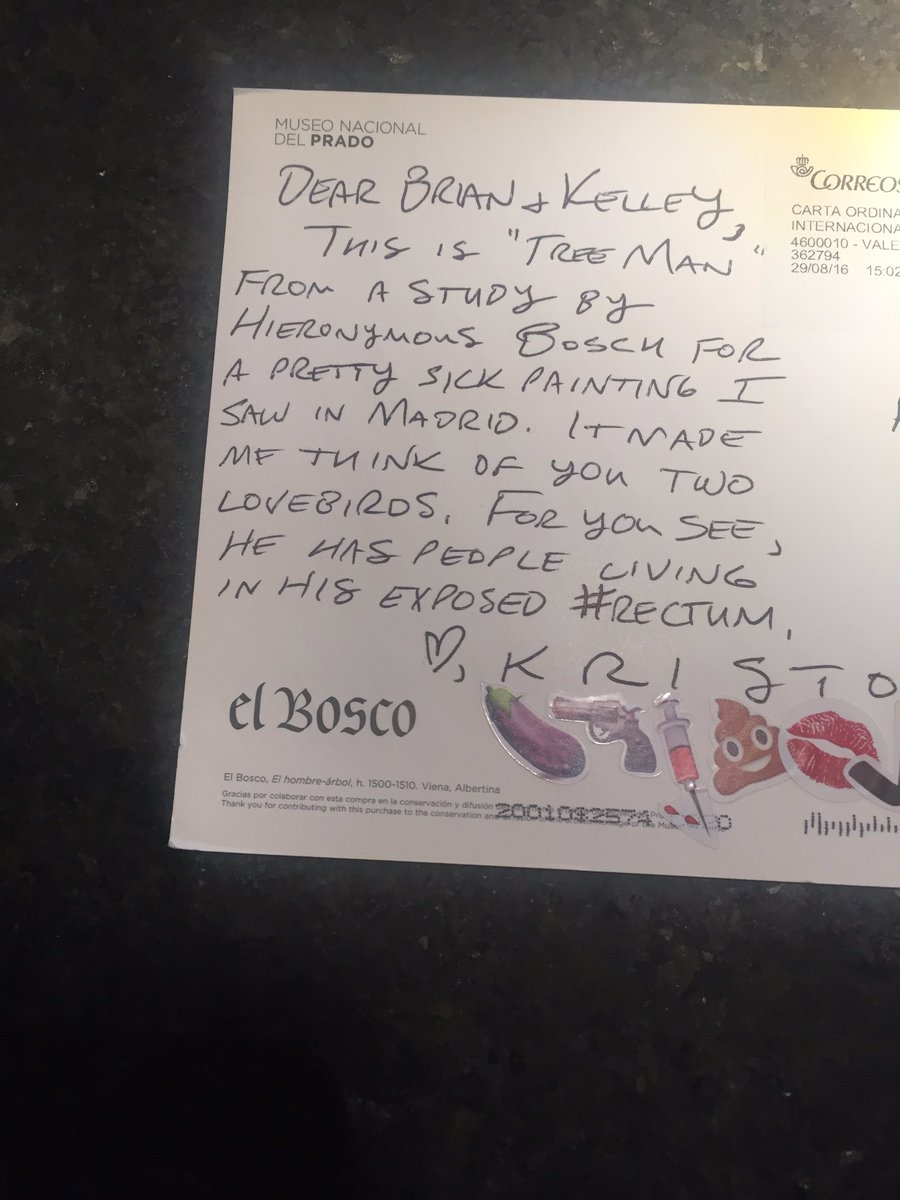 MUSEO NACIONAL
DEL PRADO
CORREOS
CARTA ORDINA
INTERNACIONA
4600010 - VALE
362794
29/08/16 15:02
DEAR BRIAN & KELLEY,
THIS IS "TREE MAN"
FROM A STUDY BY
HIERONYMOUS BOSCH FOR
A PRETTY SICK PAINTING I
SAW IN MADRID. IT MADE
ME THINK OF YOU TWO
LOVEBIRDS. FOR YOU SEE,
HE HAS PEOPLE LIVING
IN HIS EXPOSED #RECTUM.
♡, KRISTO
el Bosco
El Bosco, El hombre-árbol, h. 1500-1510. Viena, Albertina
Gracias por colaborar con esta compra en la conservación y difusión
Thank you for contributing with this purchase to the conservation and of the